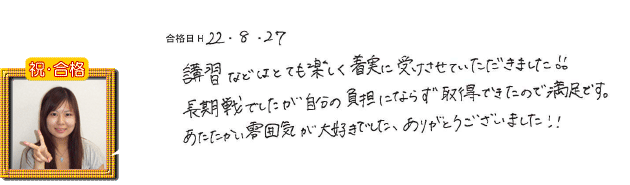 合格日 H 22・8・27
祝・合格
講習などはとても楽しく着実に受けさせていただきました♨
長期戦でしたが自分の負担にならず取得できたので満足です。
あたたかい雰囲気が大好きでした、ありがとうございました!!